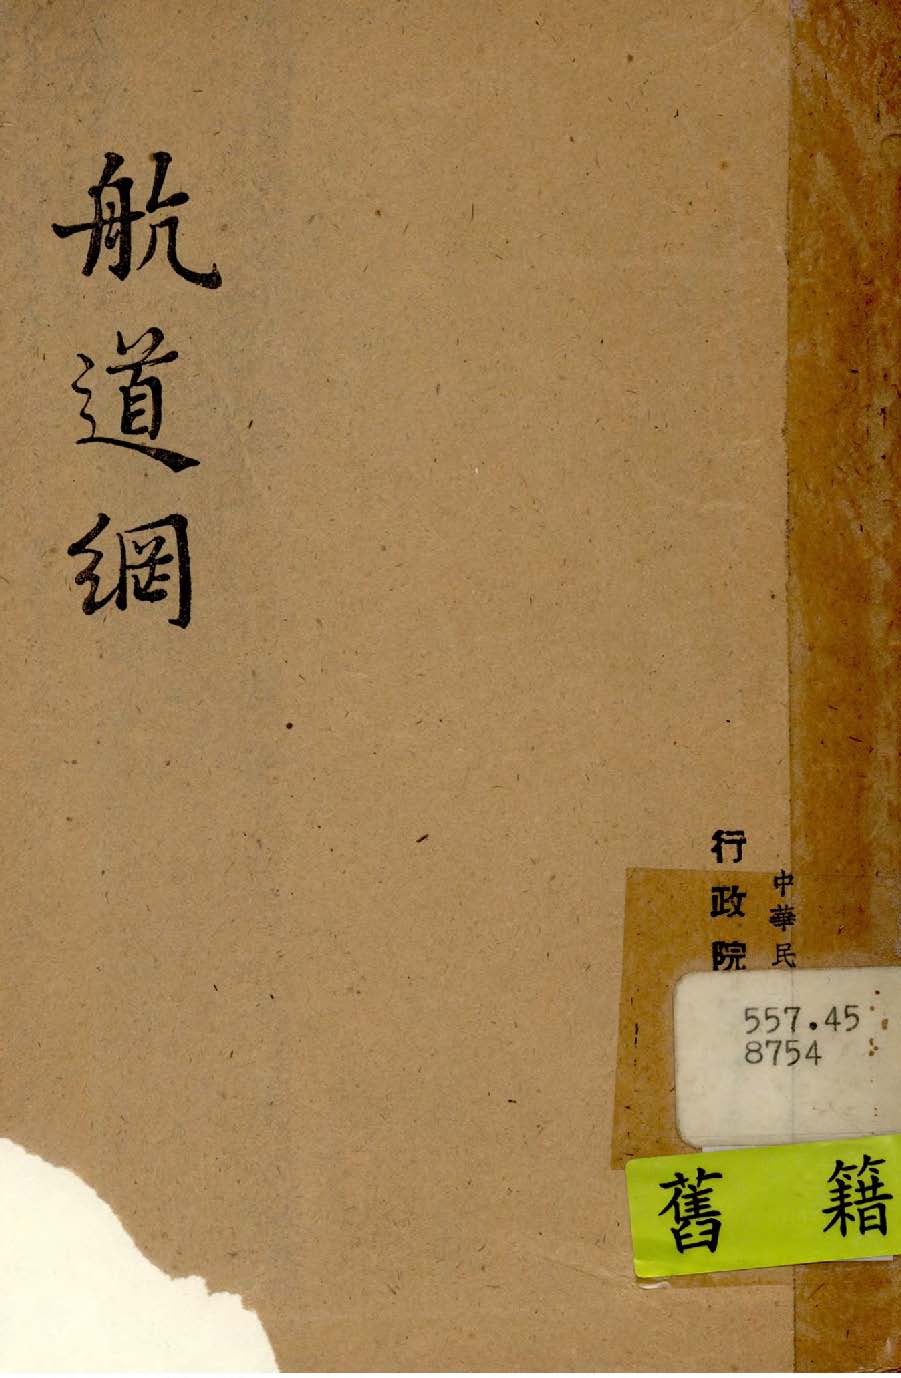 航道網
中華民
行政院
557.45
8754
舊籍